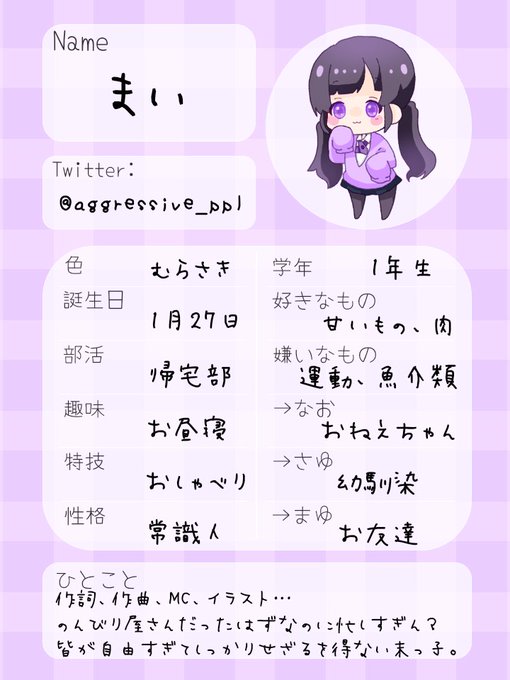 Name
まい
Twitter:
@aggressive_ppl
色 むらさき
学年 1年生
誕生日 1月27日
好きなもの 甘いもの、肉
部活 帰宅部
嫌いなもの 運動、魚介類
趣味 お昼寝
→なお おねえちゃん
特技 おしゃべり
→さゆ 幼馴染
性格 常識人
→まゆ お友達
ひとこと
作詞、作曲、MC、イラスト…
のんびり屋さんだったはずなのに忙しすぎん？
皆が自由すぎてしっかりせざるを得ない末っ子。